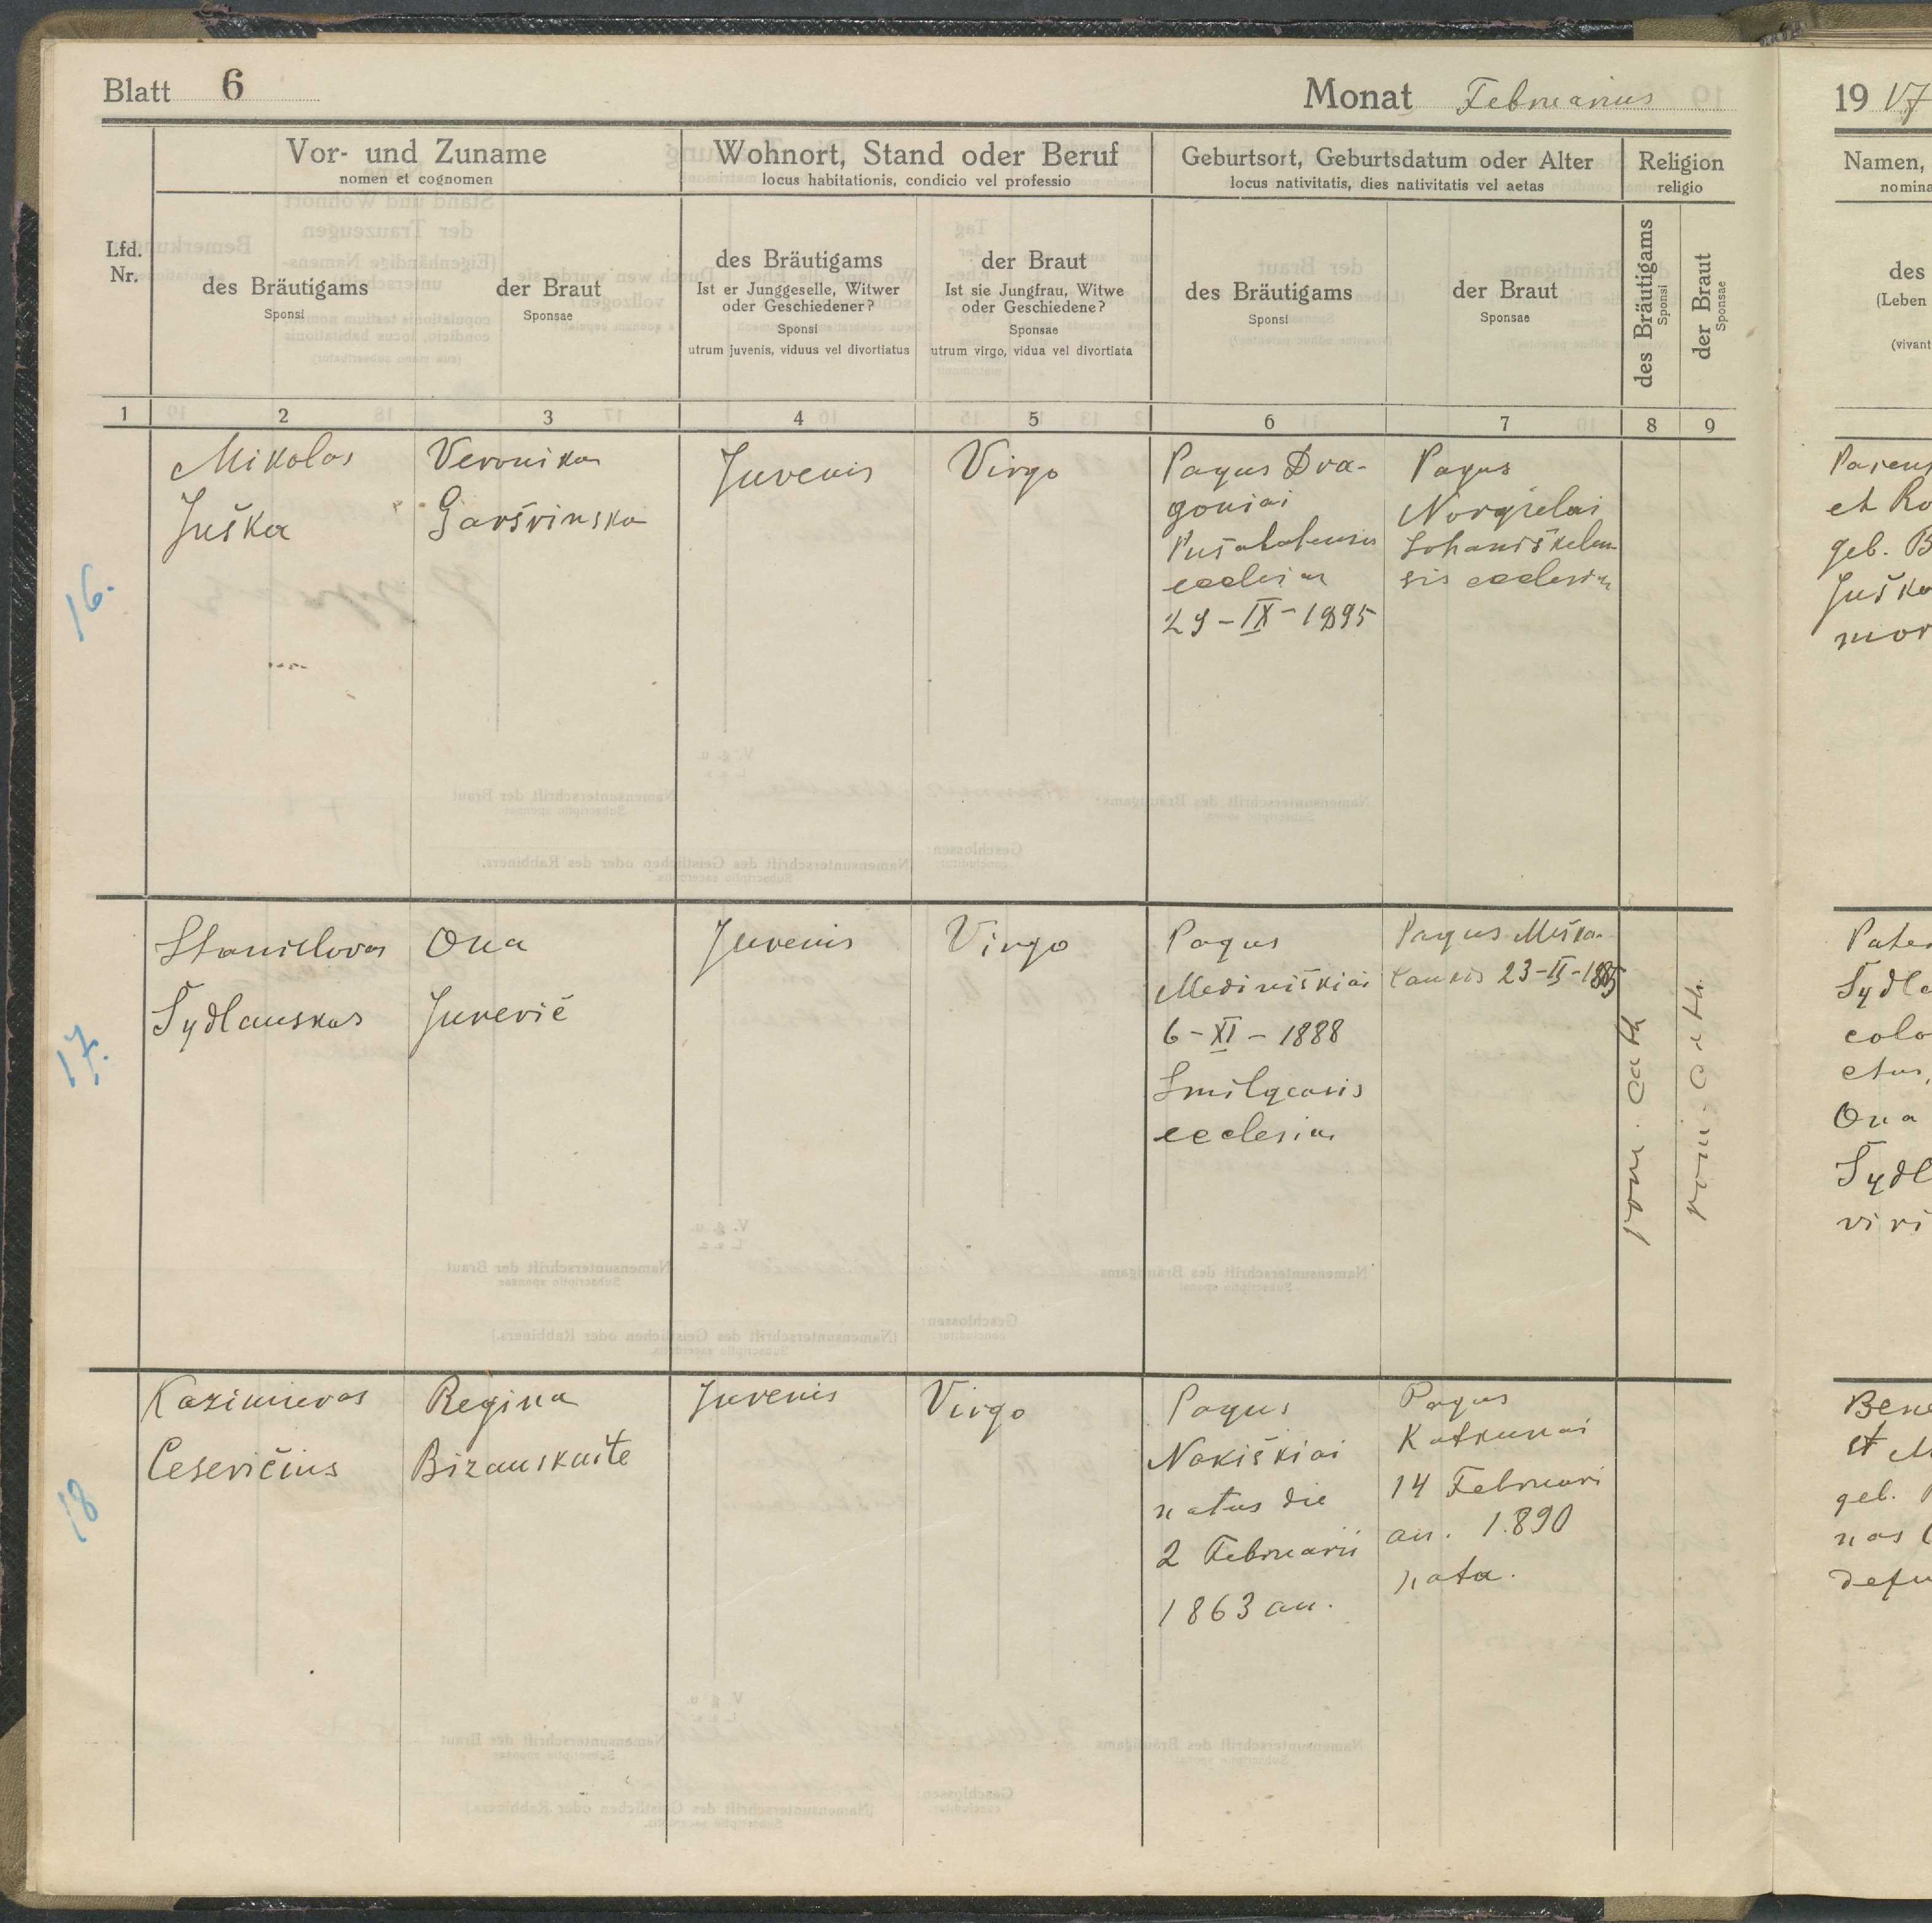 Blatt 6
Monat Februarius
Lfd. Nr.
Vor- und Zuname
nomen et cognomen
Wohnort, Stand oder Beruf
locus habitationis, condicio vel professio
Geburtsort, Geburtsdatum oder Alter
locus nativitatis, dies nativitatis vel aetas
Religion
religio
des Bräutigams
Sponsi
der Braut
Sponsae
des Bräutigams
Ist er Junggeselle, Witwer
oder Geschiedener?
Sponsi
utrum juvenis, viduus vel divortiatus
der Braut
Ist sie Jungfrau, Witwe
oder Geschiedene?
Sponsae
utrum virgo, vidua vel divortiata
des Bräutigams
Sponsi
der Braut
Sponsae
des Bräutigams
Sponsi
der Braut
Sponsae
1 2 3 4 5 6 7 8 9
16.
Mikolas
Juška
Veronika
Garšvinska
Juvenis
Virgo
Pagus Dra-
goniai
Pušalatensis
ecclesia
29-IX-1895
Pagus
Norgielai
Johaniškelen
sis ecclesia
17.
Stanislovas
Šydlauskas
Ona
Jurevič
Juvenis
Virgo
Pagus
Mediniškiai
6-XI-1888
Smilgeasis
ecclesia
Pagus Miška-
laukis 23-II-1885
rom. cath
rom. cath.
18
Kazimieras
Cesevičius
Regina
Bizauskaite
Juvenis
Virgo
Pagus
Nakiškiai
natus die
2 Februarii
1863 an.
Pagus
Katkunai
14 Februari
an. 1890
nata.
1917
Namen,
nomina
des
(Leben
(vivant
Parent
et Ro
geb. B
Juška
mor
Pater
Šydla
colo
Ona
Šydl
vi vi
Bene
et M
geb.
nas
defu